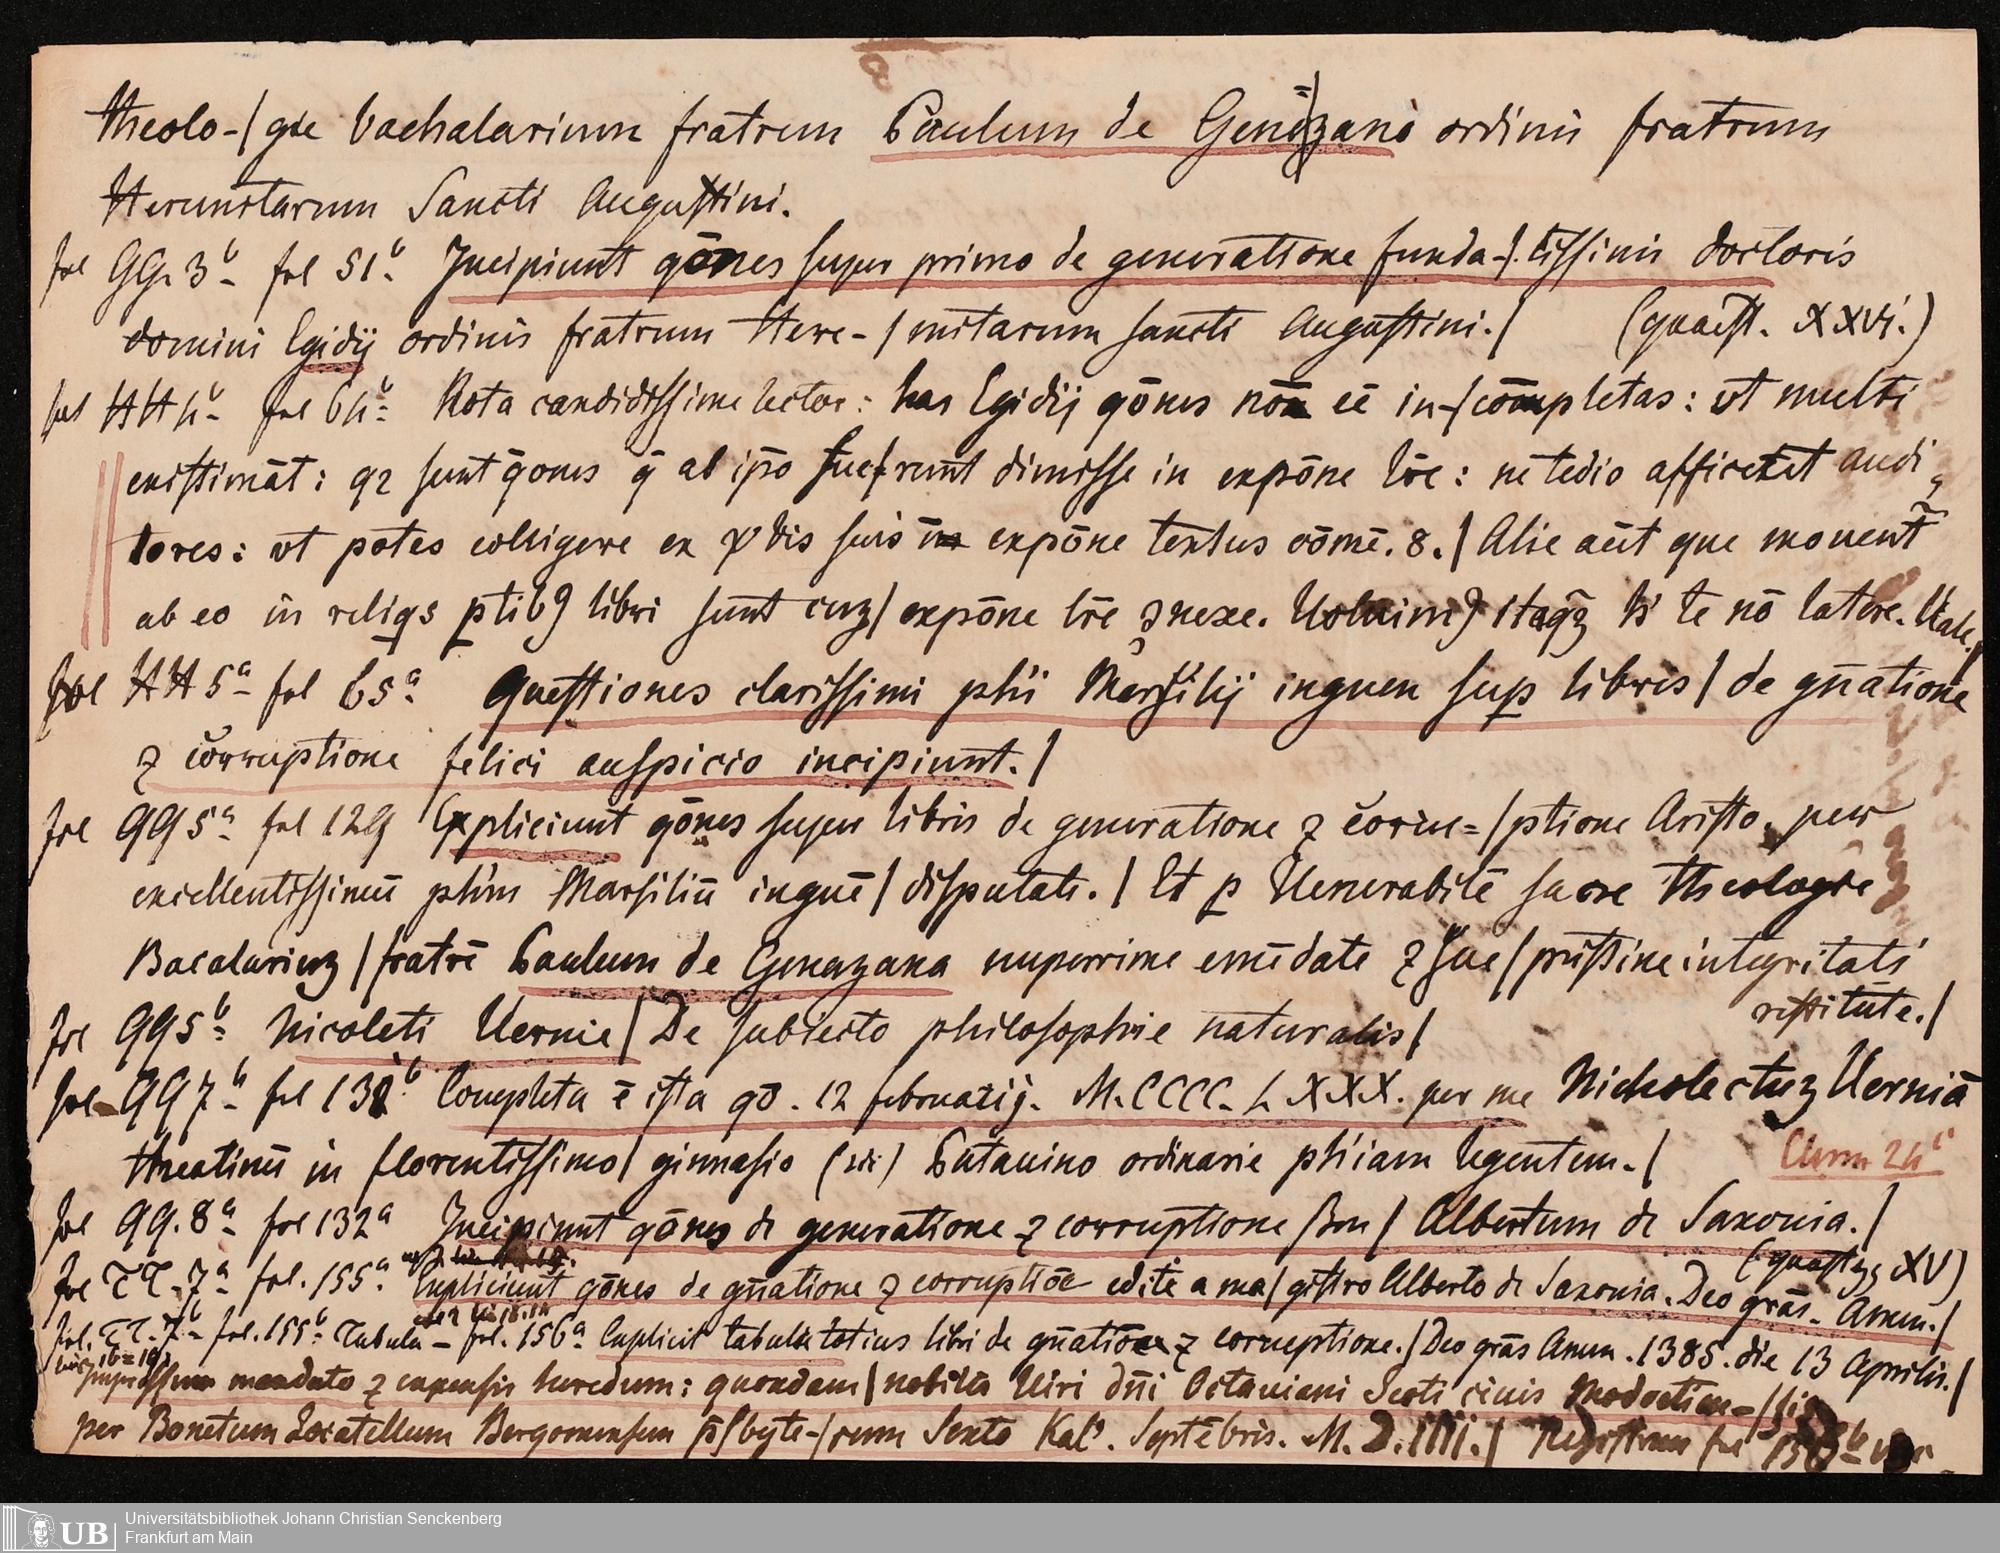 theolo-/gie bachalarium fratrem Paulum de Genazano ordinis fratrum
Heremitarum Sancti Augustini.
fol GG.3b fol 51b Incipiunt qōnes super primo de generatione funda-/tissimi doctoris
domini Egidij ordinis fratrum Here-/mitarum sancti Augustini./ (quaest. XXVI.)
fol HH4b fol 64b Nota candidissime lector: has Egidij qōnes nō eē in-/cōmpletas: vt multi
existimāt: qz sunt qōnes q̄ ab ip̄o fuerunt dimisse in expōne lrē: ne tedio afficeret audi
tores: vt potes colligere ex dis suis in expōne textus cōmē. 8./ Alie aūt que mouent̃
ab eo in reliqs ptib9 libri sunt cuz/ expōne lrē ɔnexe. Uoluim9 itaqz te nō latere. Uale.
fol HH5a fol 65a Questiones clarissimi phi Marsilij inguen sup libris/ de gn̄atione
⁊ corruptione felici auspicio incipiunt./
fol QQ5a fol 129 Expliciunt qōnes super libris de generatione ⁊ corru=/ptione Aristo. per
excellentissimū phm Marsiliū inguē/ disputate./ Et p Uenerabilē sacre theologie
Bacalariuz/fratrē Paulum de Genazana nuperrime emēdate ⁊ sue/pristine integritati
restitute./
fol QQ5b Nicoleti Uernie/ De subiecto philosophie naturalis/
fol QQ7b fol 131b Completa ē ista qō. 12 februarij. M.CCCC.LXXX. per me Nicholectuz Uerniā
theatinū in florentissimo/ gimnasio (sic) Patauino ordinarie phiam legentem./
fol QQ.8a fol 132a Incipiunt qōnes de generatione ⁊ corruptione / Albertum de Saxonia./
(quaest XV)
fol TT.7a fol. 155a Expliciunt qōnes de gn̄atione ⁊ corruptiōe edite a ma/gistro Alberto de Saxonia. Deo grās. Amen./
fol. TT.7b fol. 155b Tabula – fol. 156a Explicit tabula totius libri de gn̄atiōe ⁊ corruptione./ Deo grās Amen. 1385. die 13 Aprilis./
Impressum mandato ⁊ expensis heredum: quondam/ nobilis Uiri dn̄i Octauiani Scoti ciuis Modoetien-/sis
per Bonetum Locatellum Bergomensem p̄sbyte-/rum Sexto Kal'. Septēbris. M.D.IIII./ Registrum fol
Universitätsbibliothek Johann Christian Senckenberg
UB Frankfurt am Main